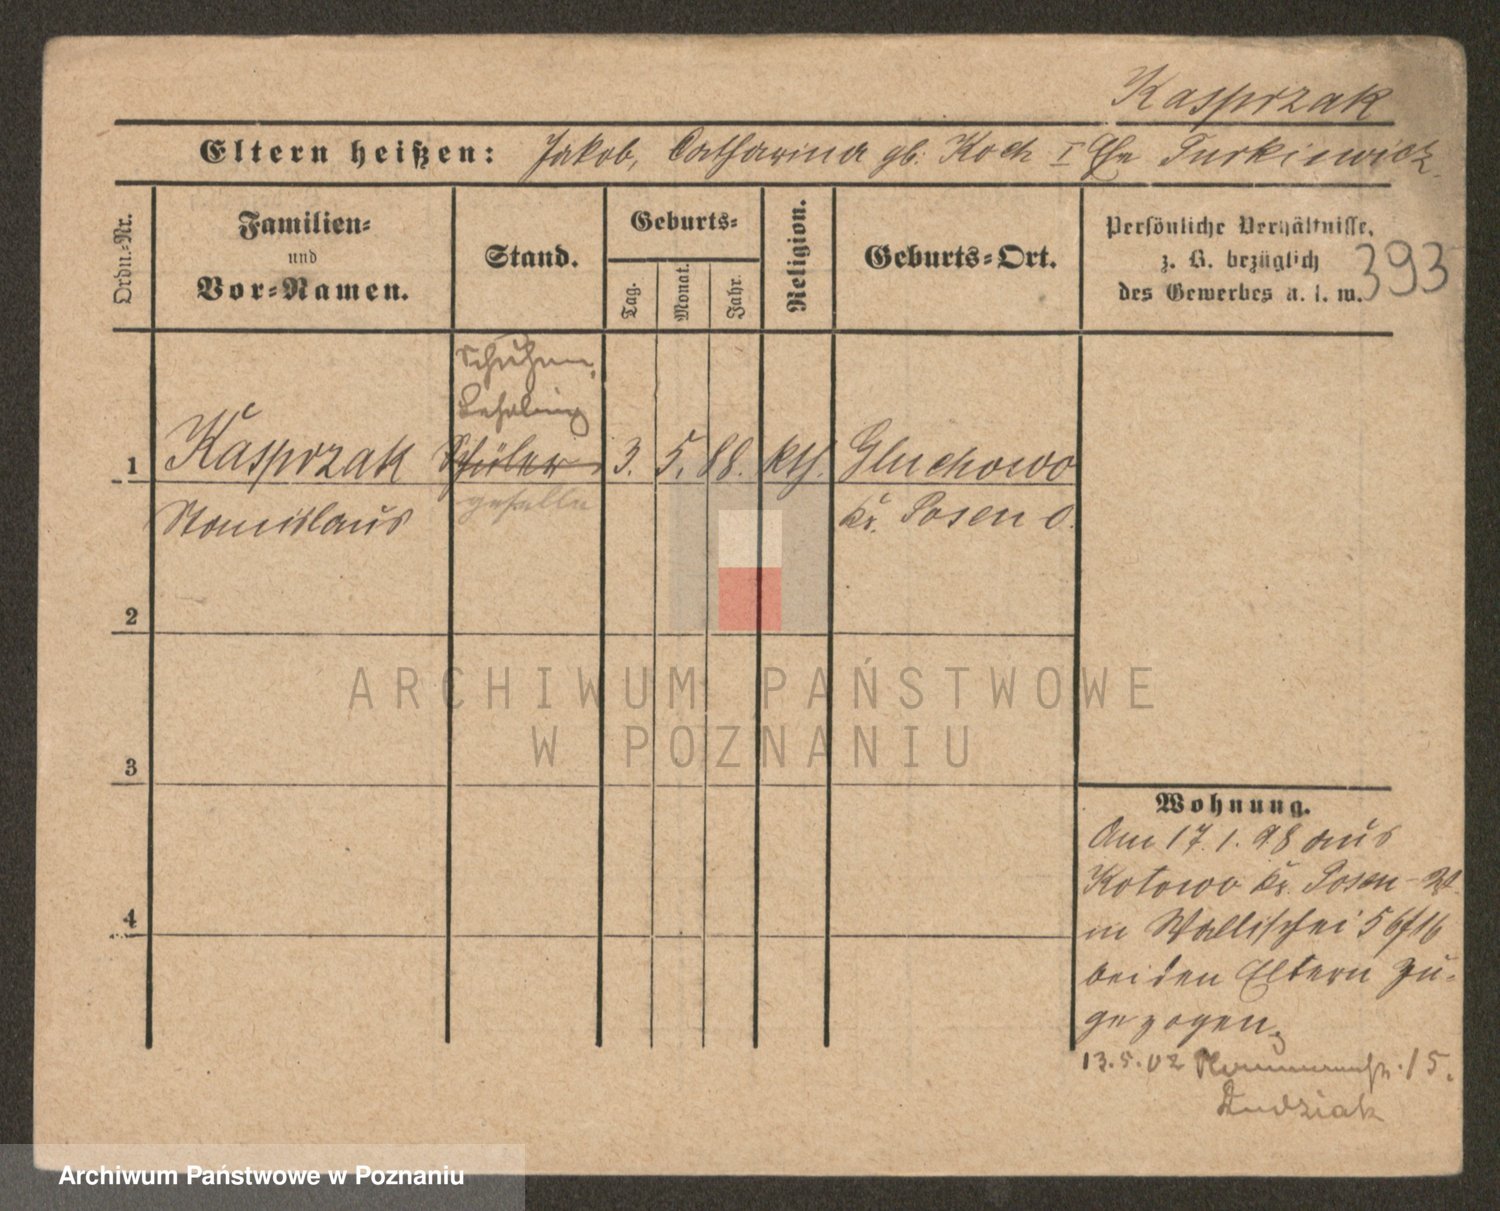 Kasprzak
Eltern heißen: Jakob, Catharina gb. Koch I Ehe Turkiewicz.
Ordn.-Nr.
Familien-
und
Vor-Namen.
Stand.
Geburts-
Tag.
Monat.
Jahr.
Religion.
Geburts-Ort.
Persönliche Verhältnisse,
z. B. bezüglich
des Gewerbes u. s. w.
393
Schuhm.
Lehrling
1 Kasprzak Schüler 3. 5. 88. kth. Gluchowo
Stanislaus geselle Kr. Posen O.
2
3
4
Wohnung.
Am 17.1.98 aus
Kotowo Kr. Posen-W
in Wallischei 56/16
bei den Eltern zu-
gezogen
13.5.02 15.
Dudziak
ARCHIWUM PAŃSTWOWE
W POZNANIU
Archiwum Państwowe w Poznaniu